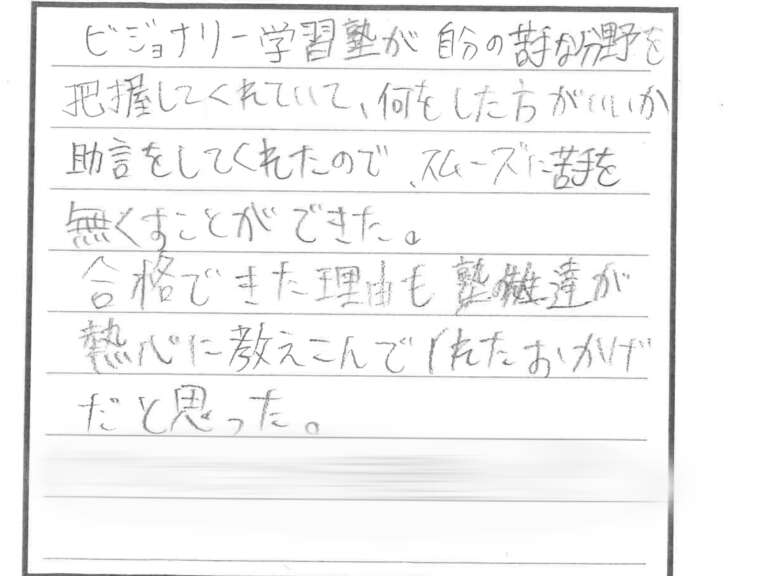 ビジョナリー学習塾が自分の苦手な分野を
把握してくれていて、何をした方がいいか
助言をしてくれたので、スムーズに苦手を
無くすことができた。
合格できた理由も塾の先生達が
熱心に教えこんでくれたおかげ
だと思った。